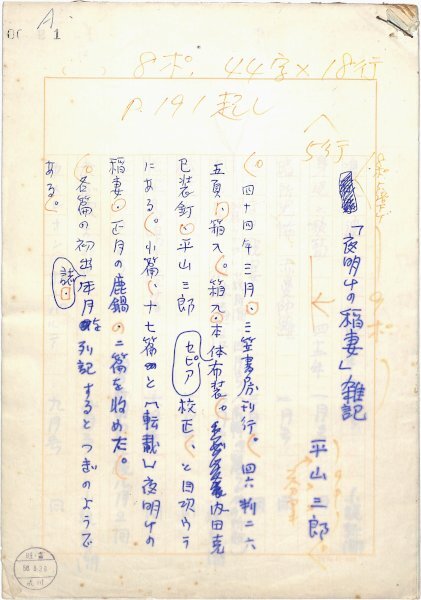 A.
8ポ. 44字×18行
P.191起し
5行
「夜明けの稲妻」雑記
平山三郎
四十四年三月、三笠書房刊行。四六判二六
五頁、箱入。箱入・本体布装。内田克
巳装釘・平山三郎 校正、と目次ウラ
セピア
にある。小篇、十七篇と〔転載〕夜明けの
稲妻・正月の鹿鍋の二篇を收めた。
各篇の初出年月を列記するとつぎのようで
誌・
ある。